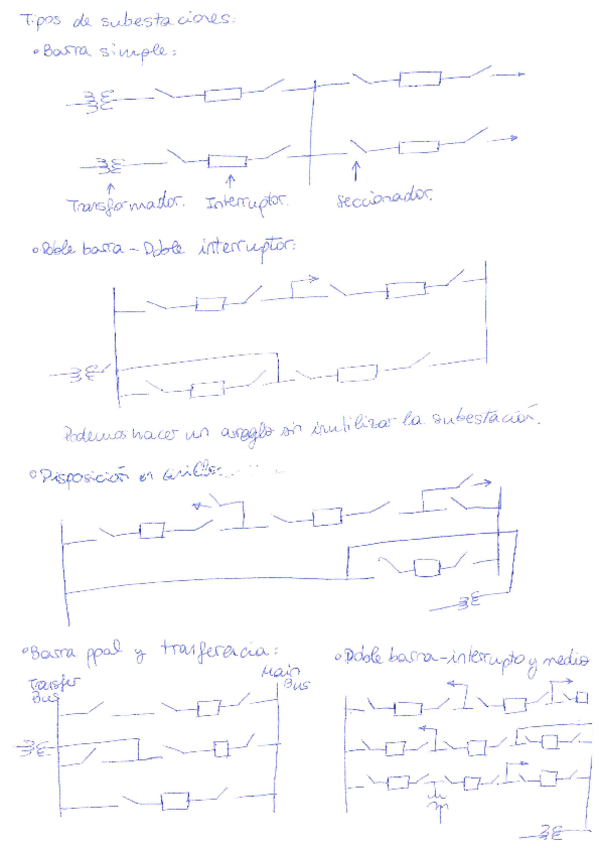 Tipos de subestaciones:
• Barra simple:
Transformador. Interruptor. Seccionador.
• Doble barra - Doble interruptor:
Podemos hacer un arreglo sin inutilizar la subestación.
• Disposición en anillo:
• Barra ppal y trasferencia:
Transfer Bus
Main Bus
• Doble barra - interrupto y medio